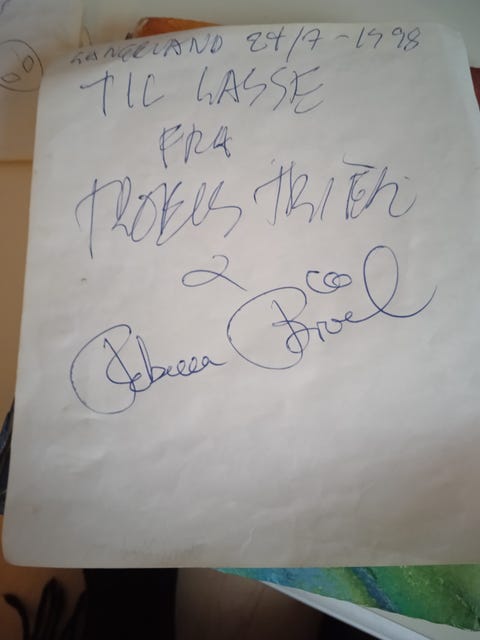 LANGELAND 24/7-1998
TIL LASSE
FRA
TROELS TRIER
&
Rebecca Brüel